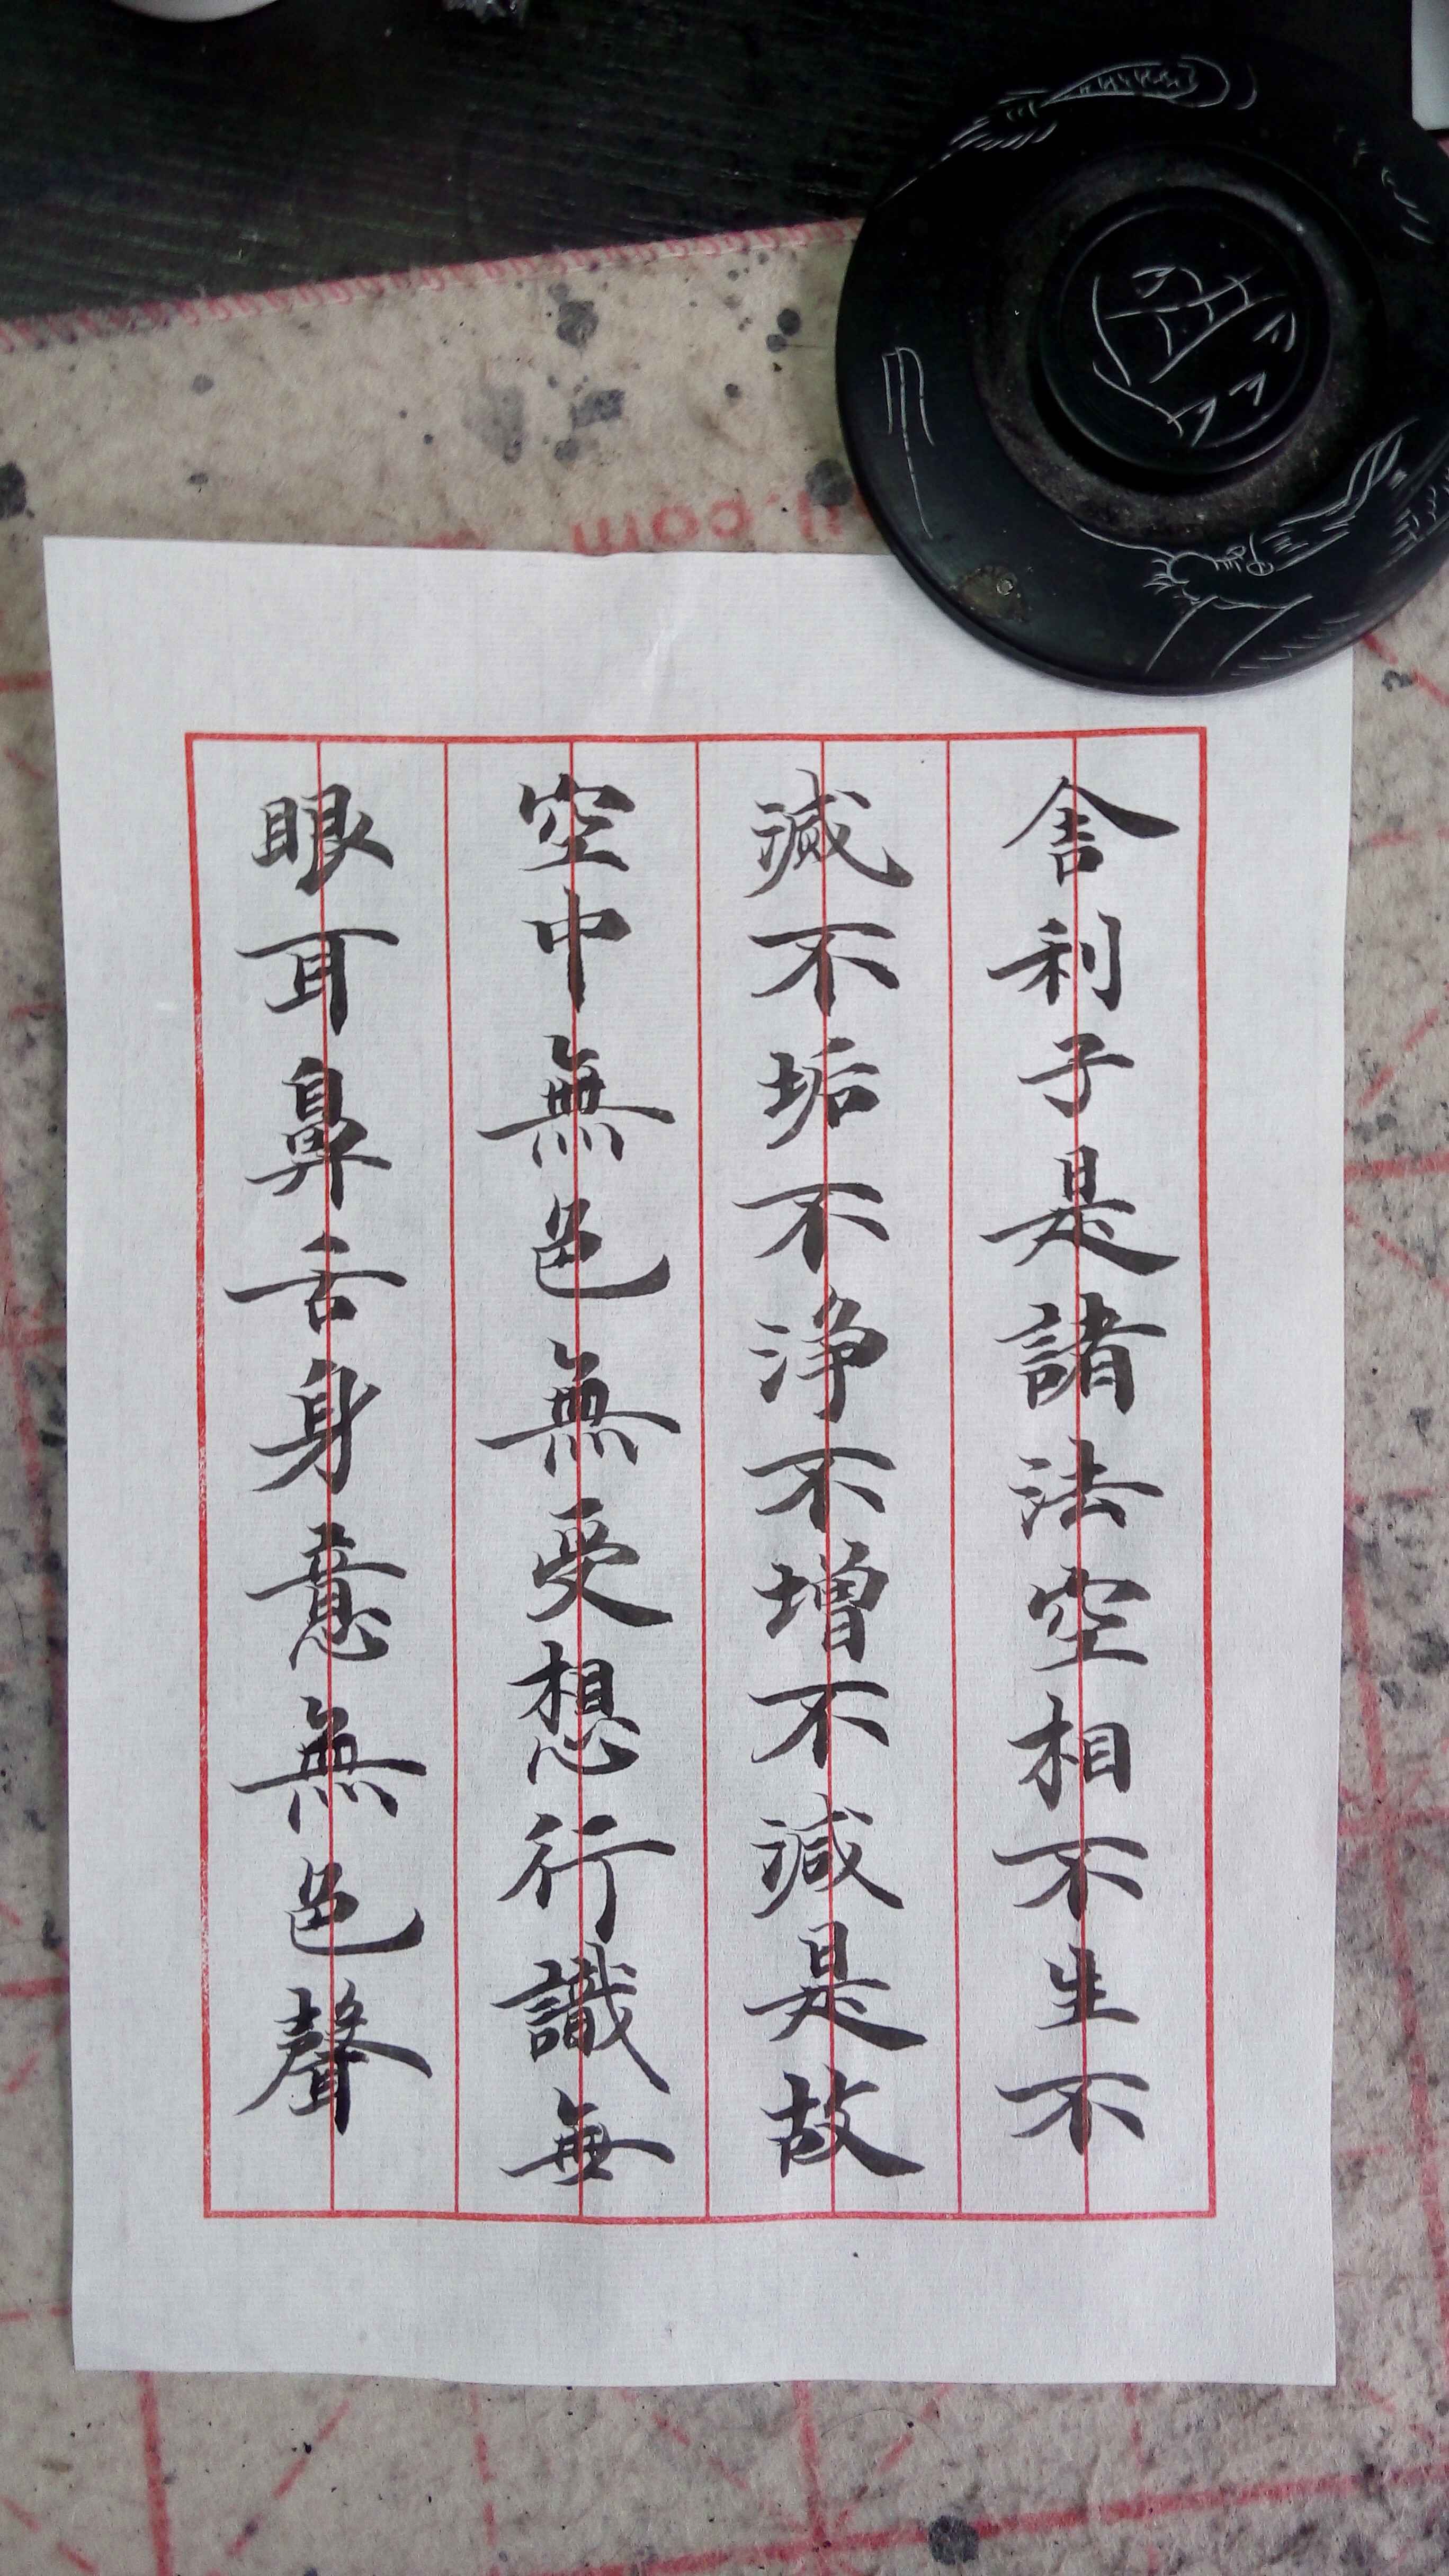 舍利子是諸法空相不生不
滅不垢不净不增不減是故
空中無色無受想行識無
眼耳鼻舌身意無色聲
.com